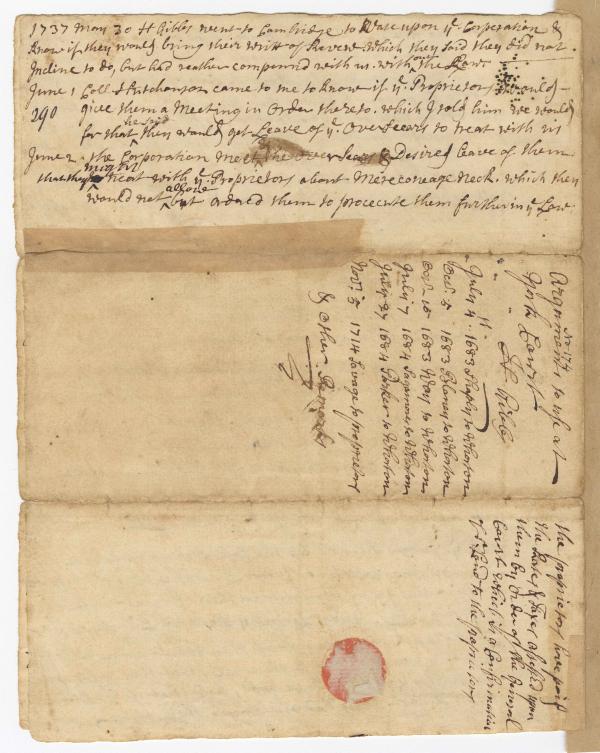 1737 May 30 H Gibbs went to Cambridge to Wate upon yͤ Corporation &
know if they would bring their writt of Revew which they said they did not
Incline to do, but had reather compound with us. with out the Law
June 1 Coll Hutchonson came to me to know if yͤ Proprietors would
290 give them a Meeting in Order thereto. which I told him we would
for that he said they would get Leave of yͤ Overseears to treat with us
June 2. the Corporation Meet, the Overseears & Desired leave of them
that they might treat with yͤ Proprietors about Mereconeage Neck. which they
would not allowe but ordered them to procecute them further in yͤ Law.
No 174
Arguments to use at
York Court
H Gibbs
July 4. 1683 Shaply to Wharton
Octo. 5 1683 Blaney to Wharton
Oct. 10 1683 Way to Wharton
July 7 1684 Sagamores to Wharton
July 27 1684 Parker to Wharton
Nov. 5 1714 Savage to proprietors
& other Remarks
the proprietors have paid
the Rates & Taxes assessed upon
them by Order of the General
Court which is a Confirmation
of yͤ Land to the proprietors